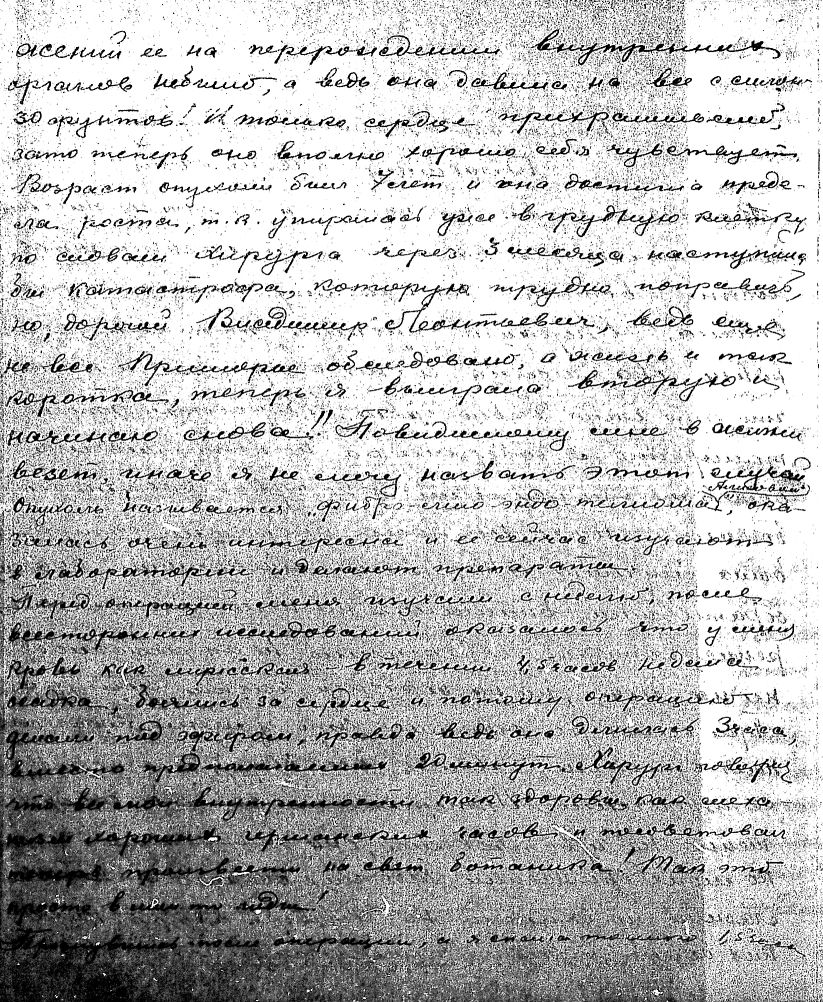 жений ее на перерождении внутренних
органов небыло, а ведь она давила на все с силой
30 фунтов! И только сердце прихрамывает,
зато теперь оно вполне хорошо себя чувствует.
Возраст опухоли был 7 лет и она достигла преде-
ла роста, т.к. упиралась уже в грудную клетку
по словам хирурга через 3 месяца наступила
бы катастрофа, которую трудно поправить,
но, дорогой Владимир Леонтьевич, ведь еще
не все Приморье обследовано, а жизнь и так
коротка, теперь я выиграла вторую и
начинаю снова!! Повидимому мне в жизни
везет, иначе я не могу назвать этот случай
Опухоль называется „фибро-мио эндо-телиома", ока-
залась очень интересна и ее сейчас изучают
в лаборатории и делают препараты.
Перед операцией меня изучали с неделю, после
всесторонних исследований оказалось что у меня
кровь как в течении 4,5 часов не дала
осадка, боялись за сердце и потому операцию
делали под эфиром, правда ведь она длилась 3 часа,
вместо предполагаемых 20 минут. Хирург говорил
что все мои внутренности так здоровы, как меха-
низм хороших германских часов и посоветовал
теперь произвести на свет ботаника! Так это
просто в
после операции, а я спала только 1,5 часа